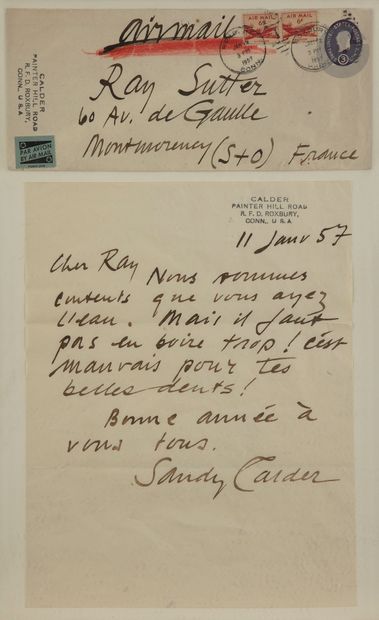 airmail
AIR MAIL
6¢
AIR MAIL
6¢
1957
CONN.
CALDER
PAINTER HILL ROAD
R. F. D. ROXBURY,
CONN., U S A
PAR AVION
BY AIR MAIL
3
Ray Sutter
60 Av. de Gaulle
Montmorency (S+O) France
CALDER
PAINTER HILL ROAD
R. F. D. ROXBURY,
CONN., U S A
11 Janv 57
Cher Ray
Nous sommes
contents que vous ayez
l'eau. Mais il faut
pas en boire trop! c'est
mauvais pour tes
belles dents!
Bonne année à
vous tous.
Sandy Calder